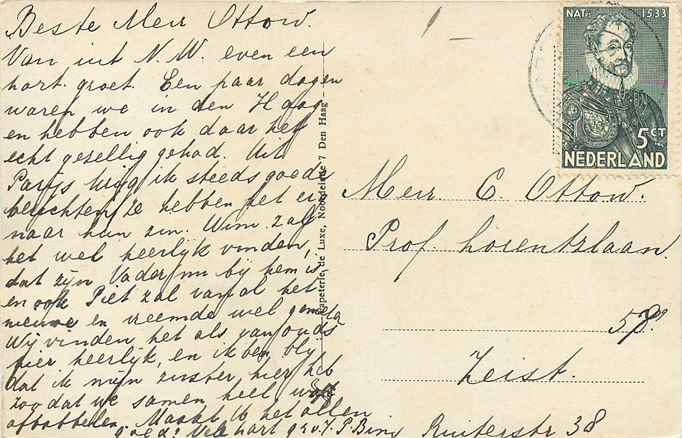 Beste Mevr Ottow.
Van uit N.W. even een
hart. groet. Een paar dagen
waren we in den Haag
en hebben ook daar het
echt gezellig gehad. Uit
Parijs krijg ik steeds goede
berichten, ze hebben het er
naar hun zin. Wim zal
het wel heerlijk vinden,
dat zijn Vader nu bij hem is
en ook Piet zal van al het
nieuwe en vreemde wel genieten
Wij vinden het als vanouds
hier heerlijk, en ik ben blij
dat ik mijn zuster hier heb
zoodat we samen heel wat
afbabbelen. Maakt U het allen
goed? Vele hart gr. v.
Ruiterstr 38
Papeterie de Luxe, Noordeinde 7 Den Haag
NAT. 1533
5CT
NEDERLAND
Mevr. C Ottow.
Prof. Lorentzlaan
Zeist.